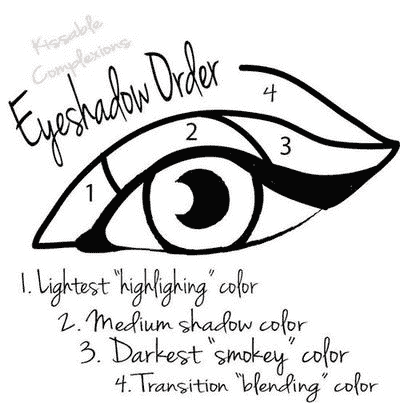 Kissable
Complexions
Eyeshadow Order
4
2
3
1
1. Lightest "highlighing" color
2. Medium shadow color
3. Darkest "smokey" color
4. Transition "blending" color